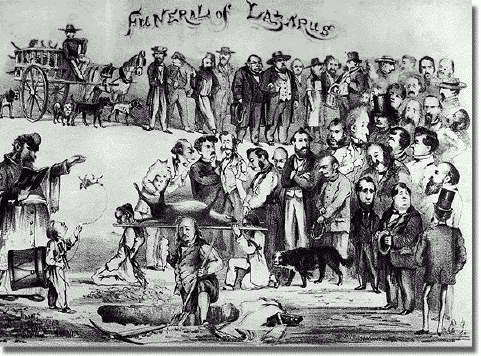 FUNERAL of LAZARUS